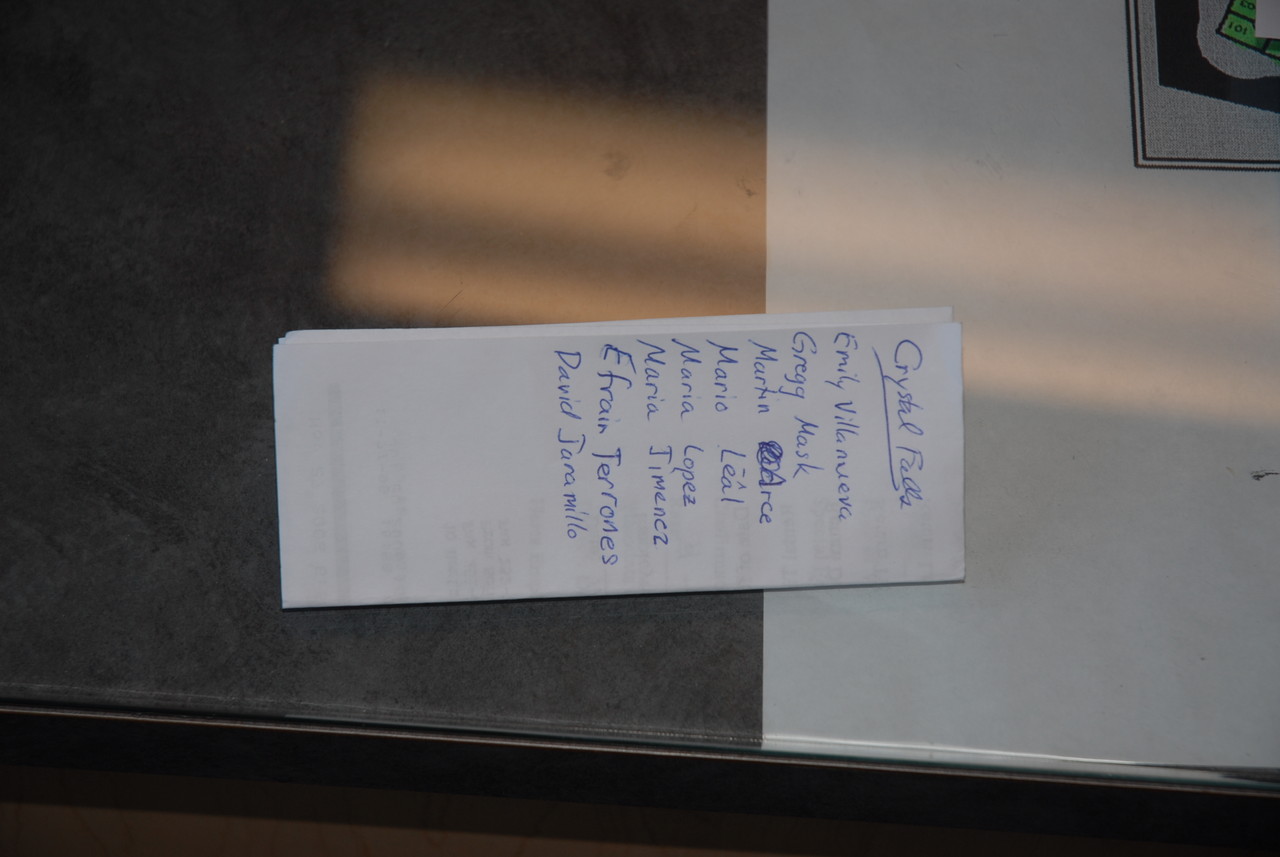 Crystal Falls
Emily Villanueva
Gregg Mask
Martin Arce
Mario Lēâl
Maria Lopez
Maria Jimenez
Efrain Terrones
David Jaramillo
101